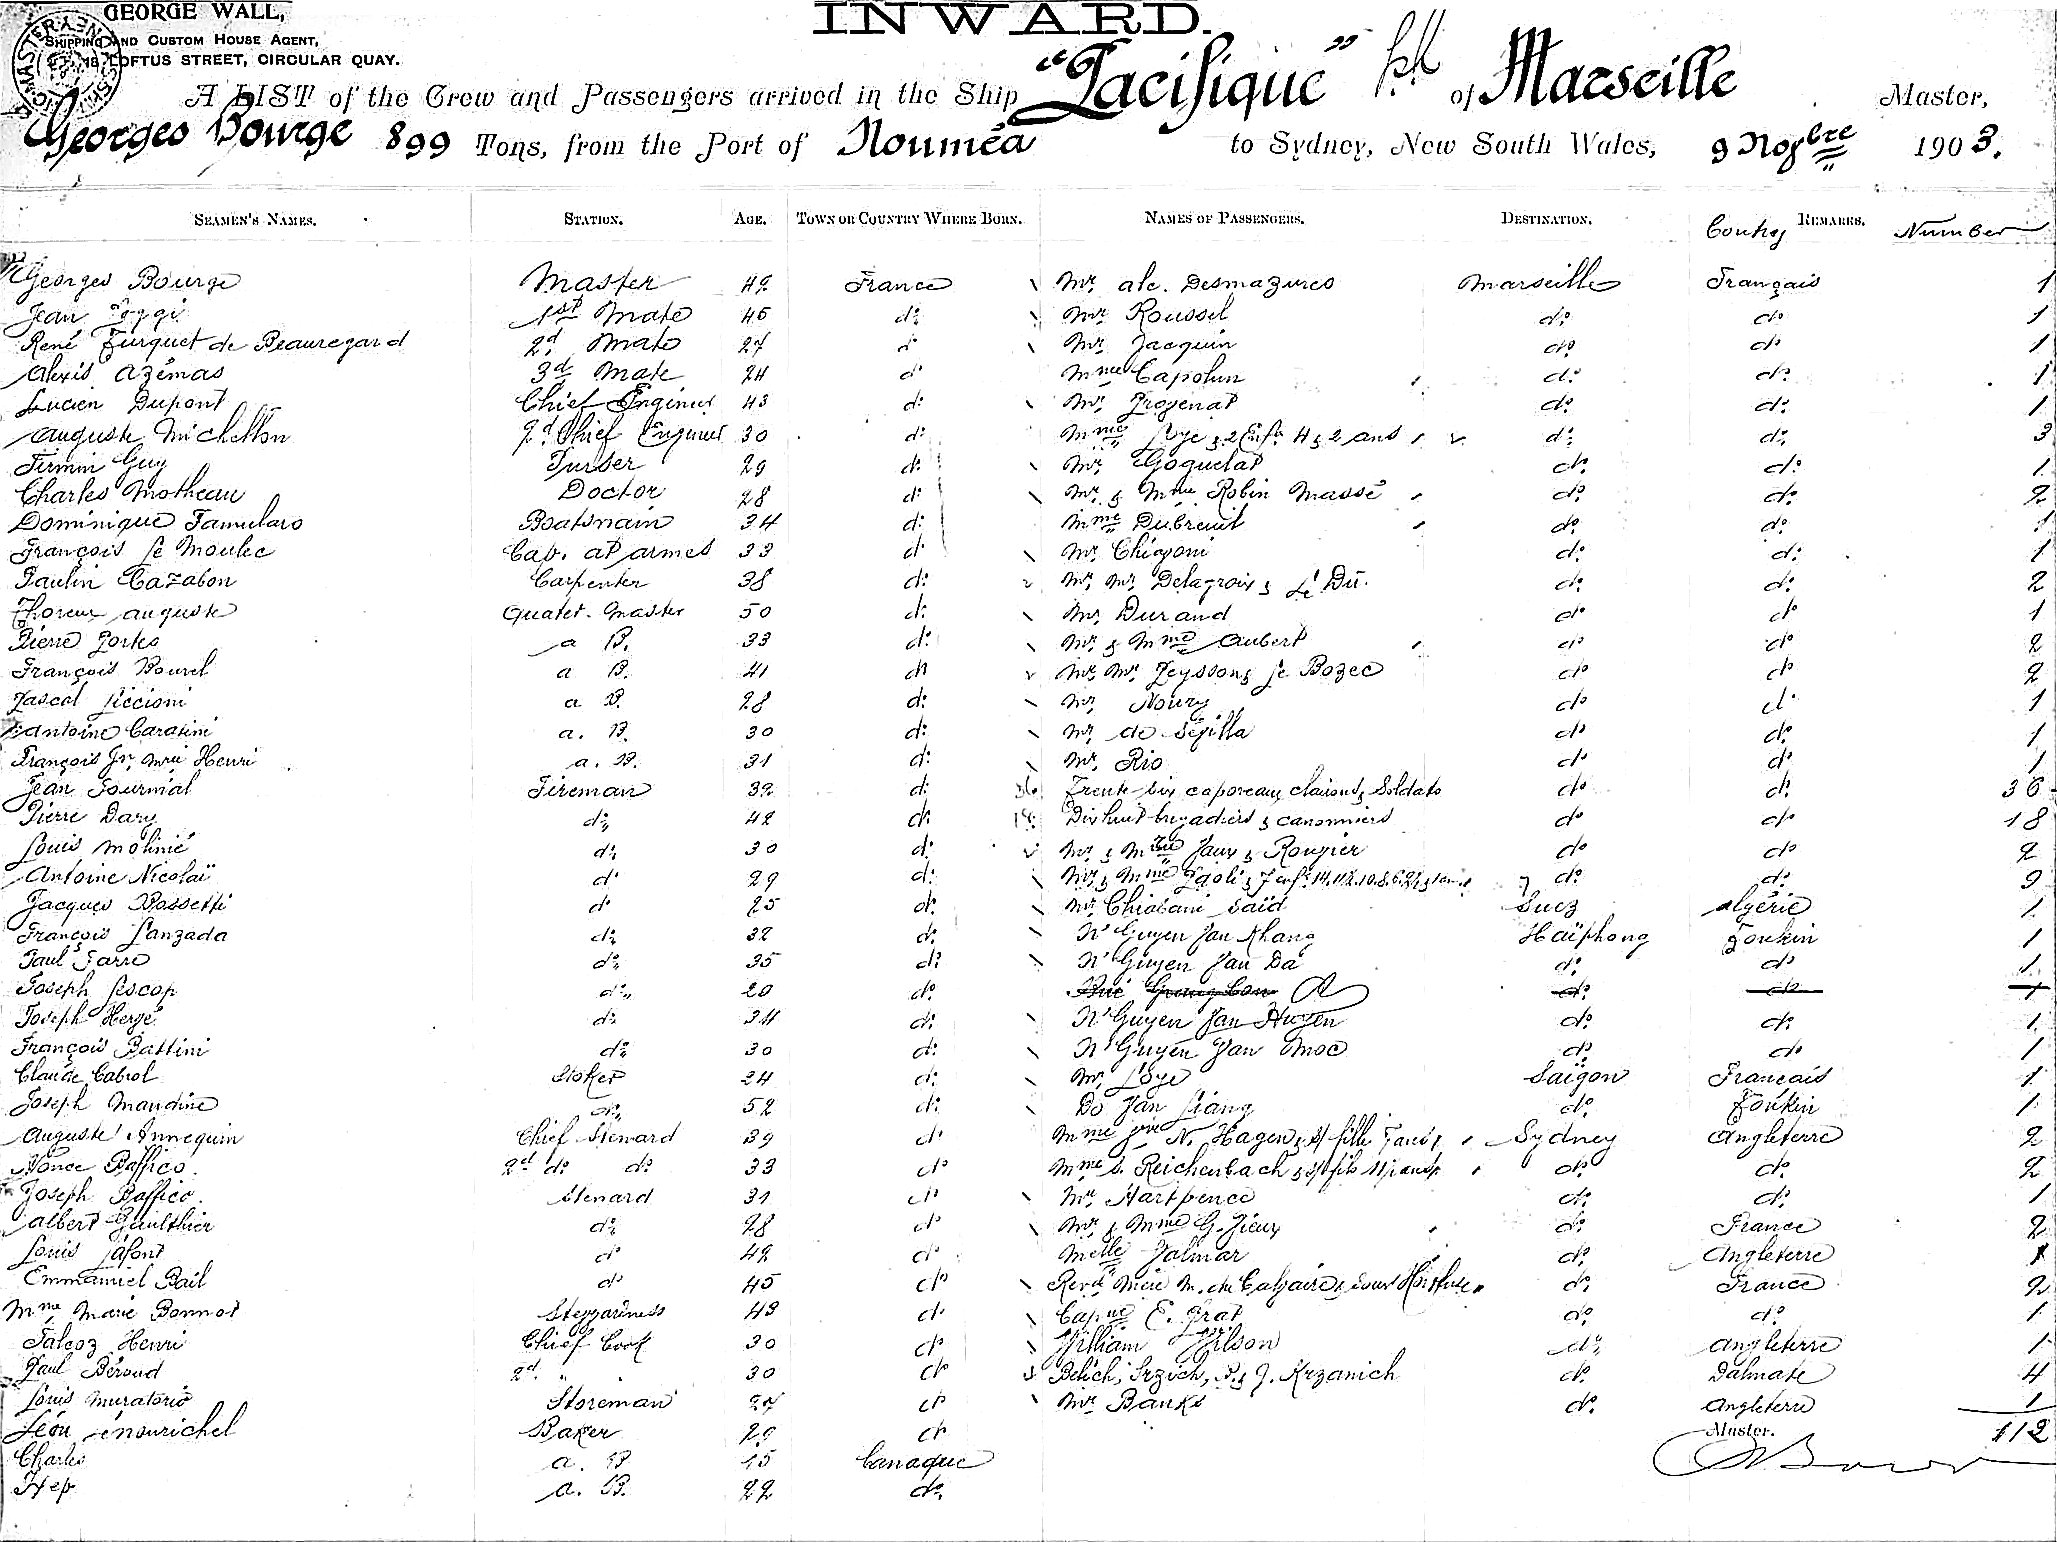 GEORGE WALL,
INWARD.
SHIPPING AND CUSTOM HOUSE AGENT,
LOFTUS STREET, CIRCULAR QUAY.
A LIST of the Crew and Passengers arrived in the Ship "Pacifique" of Marseille Master,
Georges Bourge 899 Tons, from the Port of Nouméa to Sydney, New South Wales, 9 Novbre 1903.
SEAMEN'S NAMES. STATION. AGE. TOWN OR COUNTRY WHERE BORN. NAMES OF PASSENGERS. DESTINATION. REMARKS. Number
Georges Bourge Master 42 France Mr. alc. Desmazures Marseille Français 1
Jean 1st Mate 45 do Mr Roussel do do 1
René Furquet de Beauregard 2d Mate 27 do Mr Jacquin do do 1
Alexis Azémas 3d Mate 24 do Mme Capolun do do 1
Lucien Dupont Chief Engineer 43 do Mr do do 1
Auguste Michellon 2d Chief Engineer 30 do Mme Loye & 2 Enfts 4 & 2 ans do do 3
Firmin Guy Purser 29 do Mr Goguelat do do 1
Charles Motheau Doctor 28 do Mr & Mme Robin Massé do do 2
Dominique Famularo Boatswain 34 do Mme Dubreuil do do 1
François Le Moulec Cap. at armes 33 do Mr. do do 1
Paulin Cazabon Carpenter 38 do Mr. Mr. Delagroix & Le Du. do do 2
Thoreux Auguste Quater-Master 50 do Mr. Durand do do 1
Pierre Portes a B. 33 do Mr & Mme Aubert do do 2
François Bourel a B. 41 do Mr. Mr. Peysson & Le Bozec do do 2
Pascal Piccioni a B. 28 do Mr. Noury do do 1
Antoine Caratini a. B. 30 do Mr. de Sévilla do do 1
François Jn Mrie Henri a. B. 31 do Mr. Rio do do 1
Jean Fournial Fireman 32 do 36 Trente six caporeaux clairons & Soldats do do 36
Pierre Dary do 42 do 18 Dix huit brigadiers & canonniers do do 18
Louis Molinié do 30 do Mr. & Mme & Rougier do do 2
Antoine Nicolaï do 29 do Mr. & Mme Paoli & 7 enfts do do 9
Jacques Bossetti do 25 do Mr. Chiabani Saïd Suez Algérie 1
François Lanzada do 32 do N'Guyen Van Khang Haïphong Tonkin 1
Paul Farre do 35 do N'Guyen Van Da do do 1
Joseph Lescop do 20 do do do 1
Joseph Hergé do 24 do N'Guyen Van Huyen do do 1
François Battini do 30 do N'Guyen Van Moc do do 1
Claude Cabrol Stoker 24 do Mr. Loye Saïgon Français 1
Joseph Mandine do 52 do Do Van Giang do Tonkin 1
Auguste Annequin Chief Steward 39 do Mme N. Hagen & s/ fille Sydney Angleterre 2
Nonce Baffico. 2d do do 33 do Mme S. Reichenbach & s/ fils do do 2
Joseph Baffico. Steward 31 do Mr. Hartpence do do 1
Albert Gaulthier do 28 do Mr. & Mme G. Vieux do France 2
Louis Lafont do 42 do Melle Valmar do Angleterre 1
Emmaniel Bail do 45 do Revde Mère M. du Calvaire & Soeur do France 2
Mme Marie Bonnot 43 do Capne E. Prat do do 1
Falcoz Henri Chief Cook 30 do William Wilson do Angleterre 1
Paul Béroud 2d. " 30 do Belich, Srzich, P. & J. Krzanich do Dalmate 4
Louis Muratorio Storeman 27 do Mr Banks do Angleterre 1
Léon Baker 29 do Master. 112
Charles a. B 15 Canaque
Hep a. B. 22 do